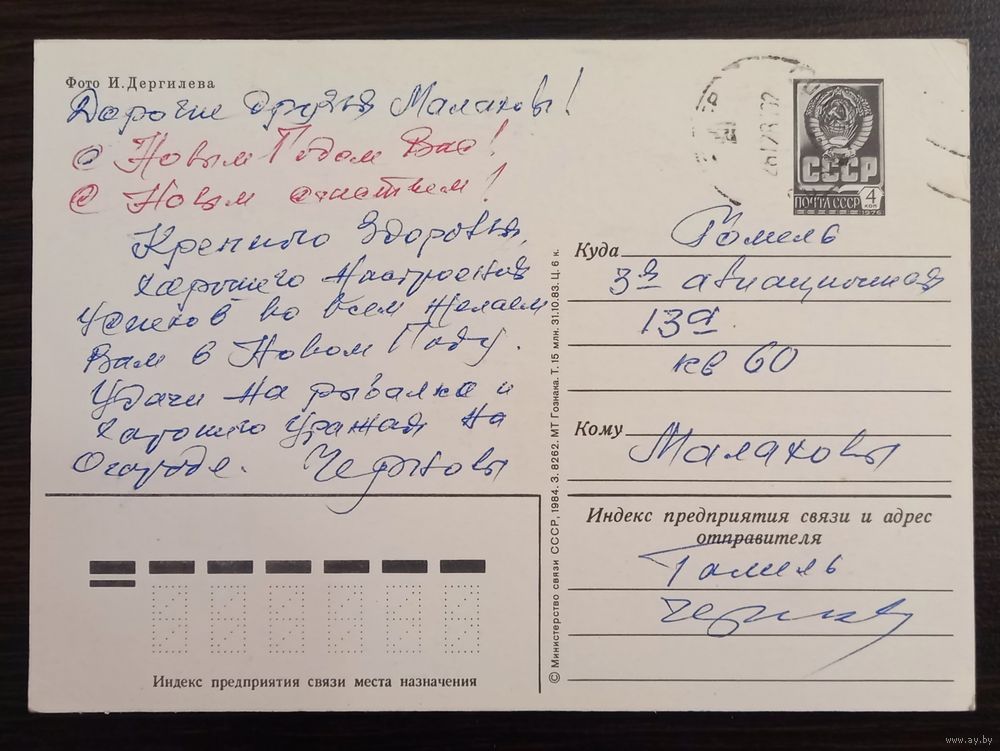 Фото И. Дергилева
Дорогие друзья Малаховы!
С Новым Годом Вас!
С Новым счастьем!
Крепкого Здоровья,
хорошего настроения
Успехов во всем желаем
Вам в Новом Году.
Удачи на рыбалке и
хорошего Урожая на
Огороде. Черновы
ПОЧТА СССР
СССР
4 коп
1976
Куда Гомель
3я авиационная
13а
кв 60
Кому Малаховы
Индекс предприятия связи и адрес
отправителя
Гомель
Индекс предприятия связи места назначения
© Министерство связи СССР, 1984. З. 8262. МТ Гознака. Т. 15 млн. 31.10.83. Ц. 6 к.
www.ay.by